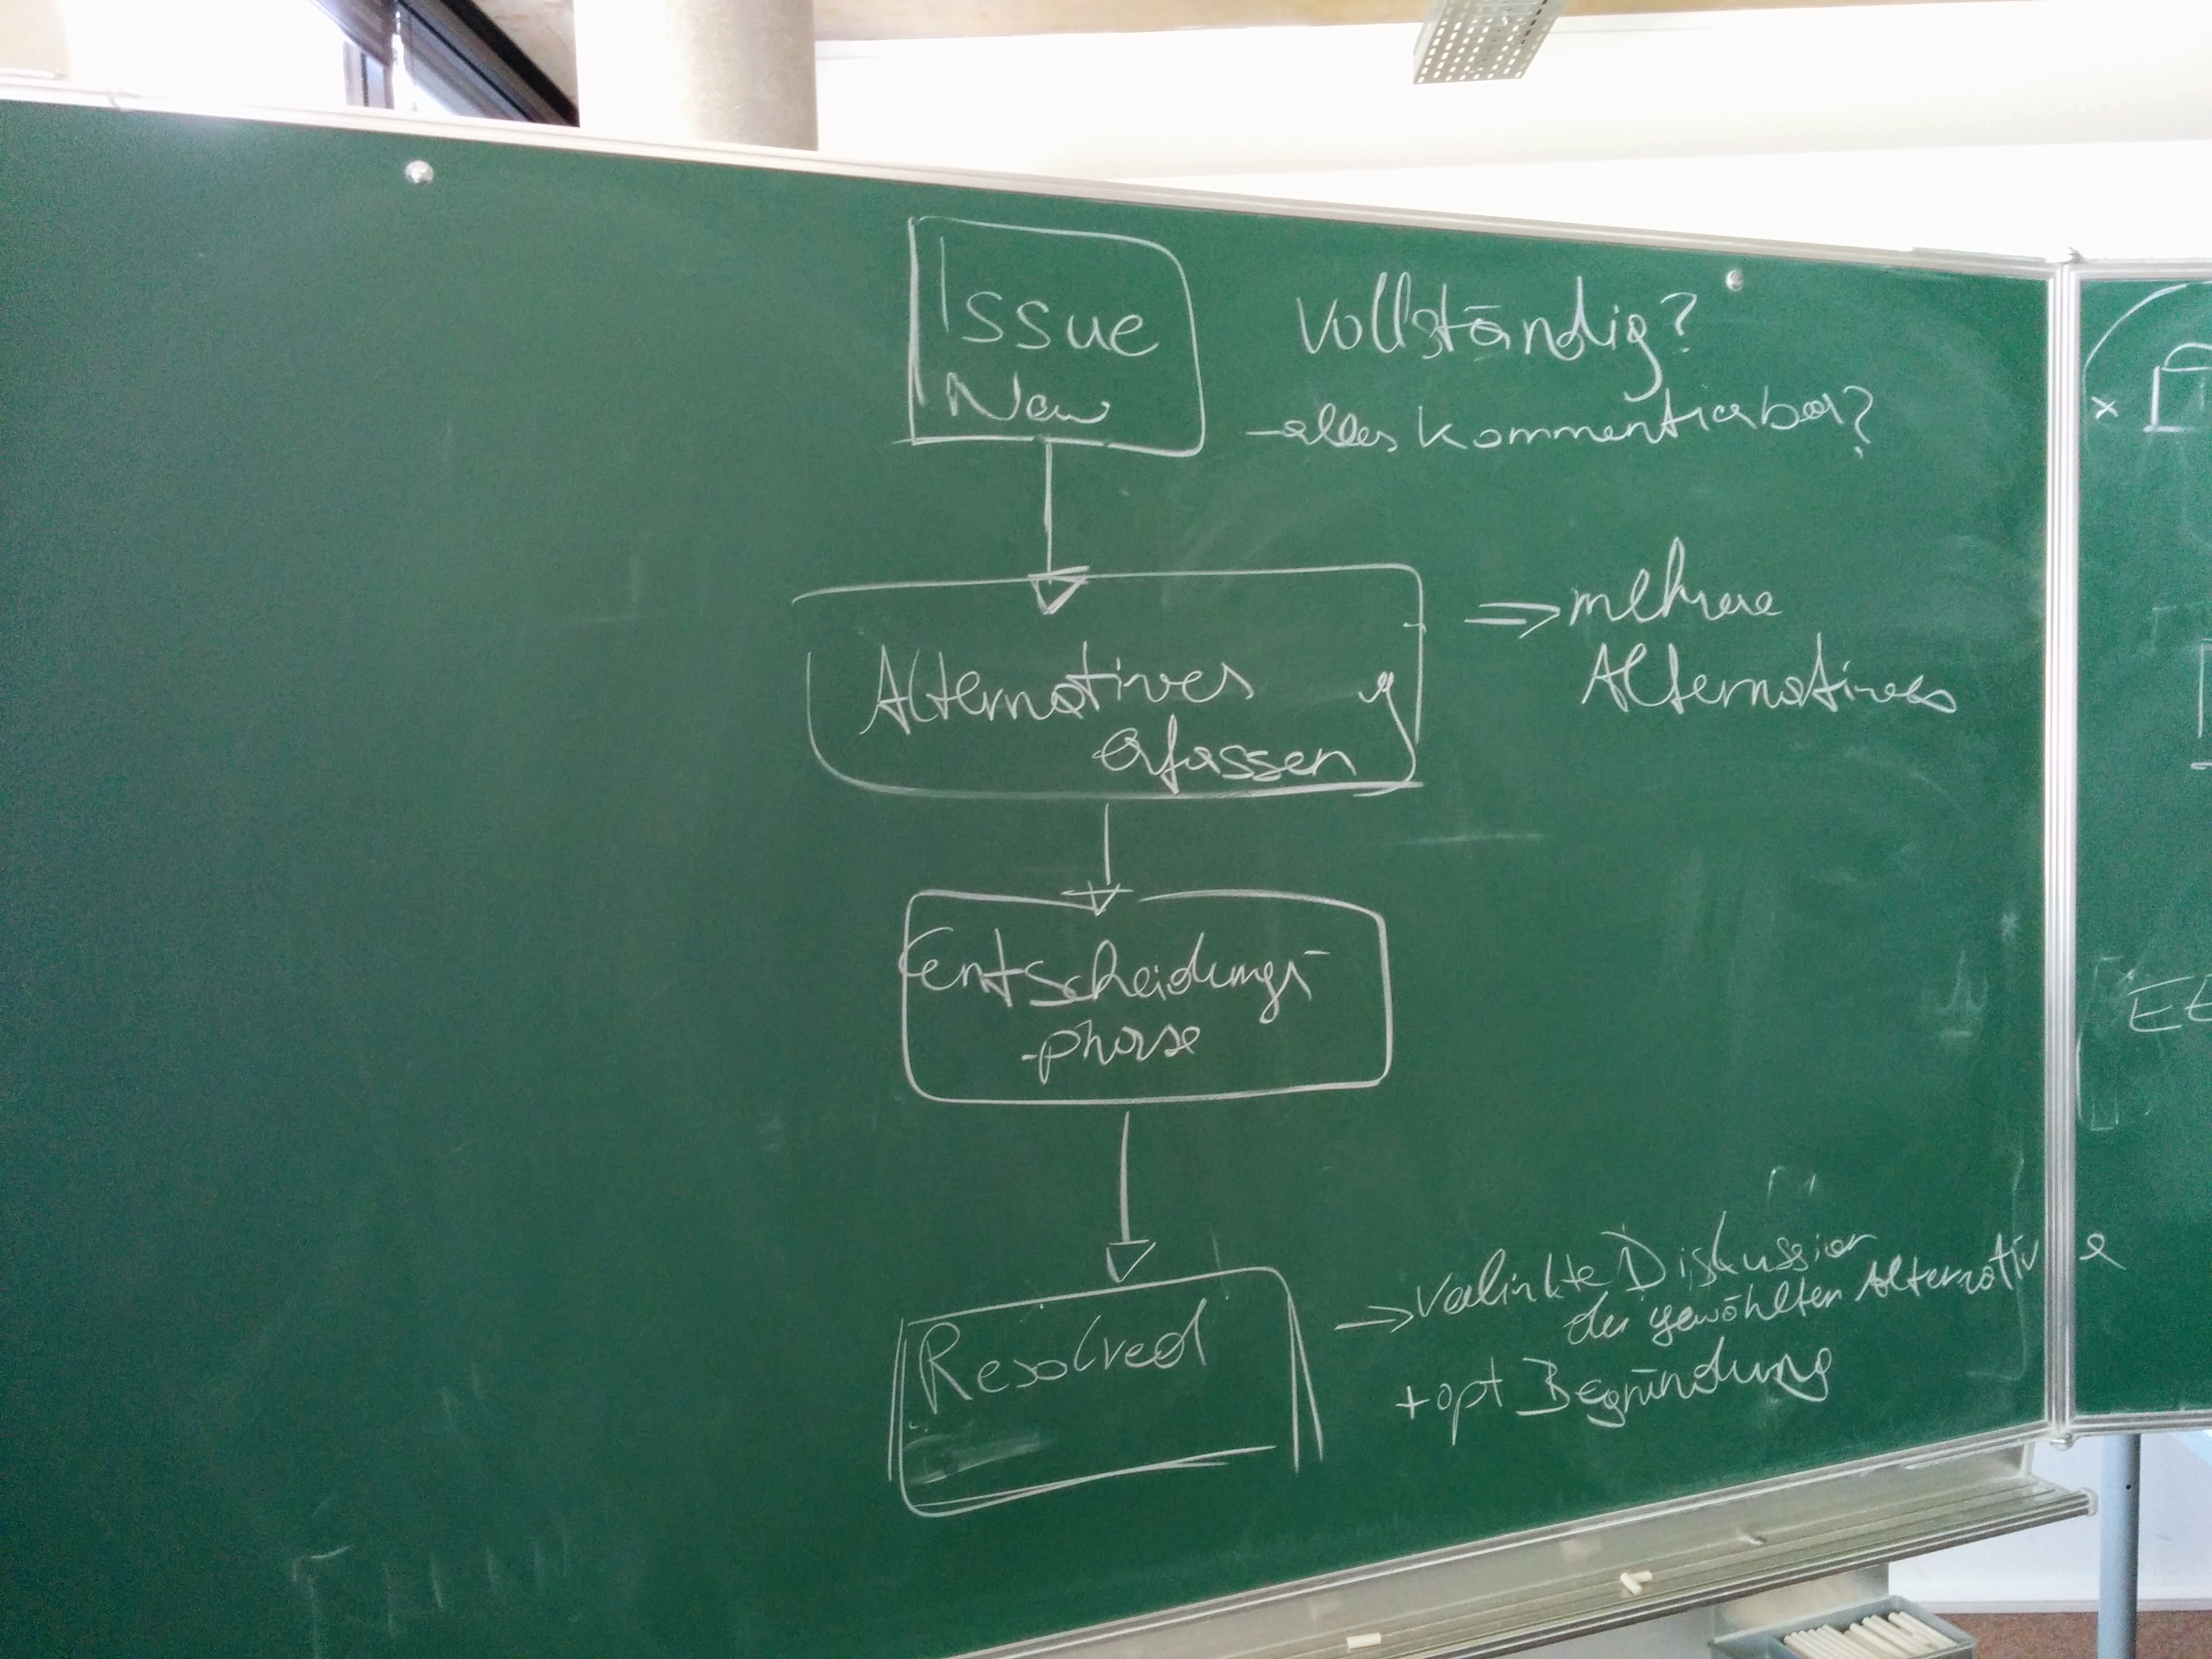 Issue
New
vollständig?
-alles kommentierbar?
Alternatives
erfassen
=> mehrere
Alternatives
Entscheidungs-
-phase
Resolved
-> verlinkte Diskussion
der gewählten Alternative
+ opt Begründung